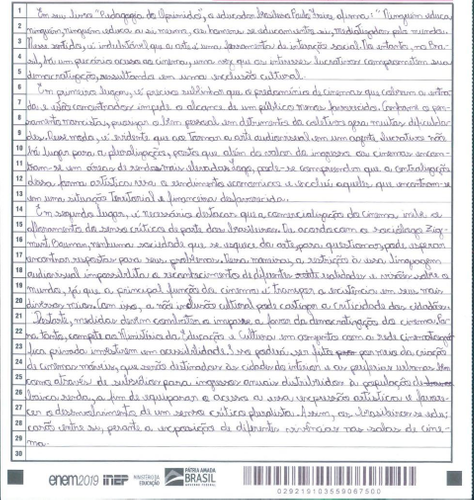 Em seu livro "Pedagogia do Oprimido", o educador brasileiro Paulo Freire afirma: "Ninguém educa
ninguém, ninguém educa a si mesmo, os homens se educam entre si, mediatizados pelo mundo.
Nesse sentido, é indubitável que a arte é uma ferramenta de interação social. No entanto, no Bra-
sil, há um precário acesso ao cinema, uma vez que os interesses lucrativos comprometem sua
democratização, resultando em uma exclusão cultural.
Em primeiro lugar, é preciso sublinhar que o predomínio de cinemas que cobram a entra-
da e estão concentrados impede o alcance de um público menos favorecido. Conforme o pen-
samento marxista, priorizar o bem pessoal em detrimento do coletivo gera muitas dificulda-
des. Desse modo, é evidente que ao tornar a arte audiovisual em um agente lucrativo não
há lugar para a pluralização, posto que além do valor do ingresso os cinemas encon-
tram-se em áreas de rendas mais elevadas. Logo, pode-se compreender que a centralização
dessa forma artística visa o rendimento econômico e exclui aqueles que encontram-se
em uma situação territorial e financeira desfavorecida.
Em segundo lugar, é necessário destacar que a comercialização do cinema inibe o
afloramento do senso crítico de parte dos brasileiros. De acordo com o sociólogo Zyg-
munt Bauman, nenhuma sociedade que se esquece da arte para questionar, pode esperar
encontrar respostas para seus problemas. Dessa maneira, a restrição à essa linguagem
audiovisual impossibilita o reconhecimento de diferentes realidades e visões sobre o
mundo, já que a principal função do cinema é transpor a existência em seus mais
diversos meios. Com isso, a não inclusão cultural pode castigar a criticidade dos cidadãos.
Destarte, medidas devem combater o impasse a favor da democratização do cinema. Por-
tanto, compete ao Ministério da Educação e Cultura em conjunto com a rede cinematográ-
fica privada investirem em acessibilidade. Isso poderá ser feito por meio da criação
de cinemas móveis, que serão destinados às cidades do interior e as periferias urbanas bem
como através de subsídios para ingressos anuais distribuídos à população de
baixa renda, a fim de equiparar o acesso a essa expressão artística e favore-
cer o desenvolvimento de um senso crítico pluralista. Assim, os brasileiros se edu-
carão entre si, perante a exposição de diferentes vivências nas salas de cine-
ma.
enem2019 inep MINISTÉRIO DA EDUCAÇÃO PÁTRIA AMADA BRASIL GOVERNO FEDERAL
029219103559067500